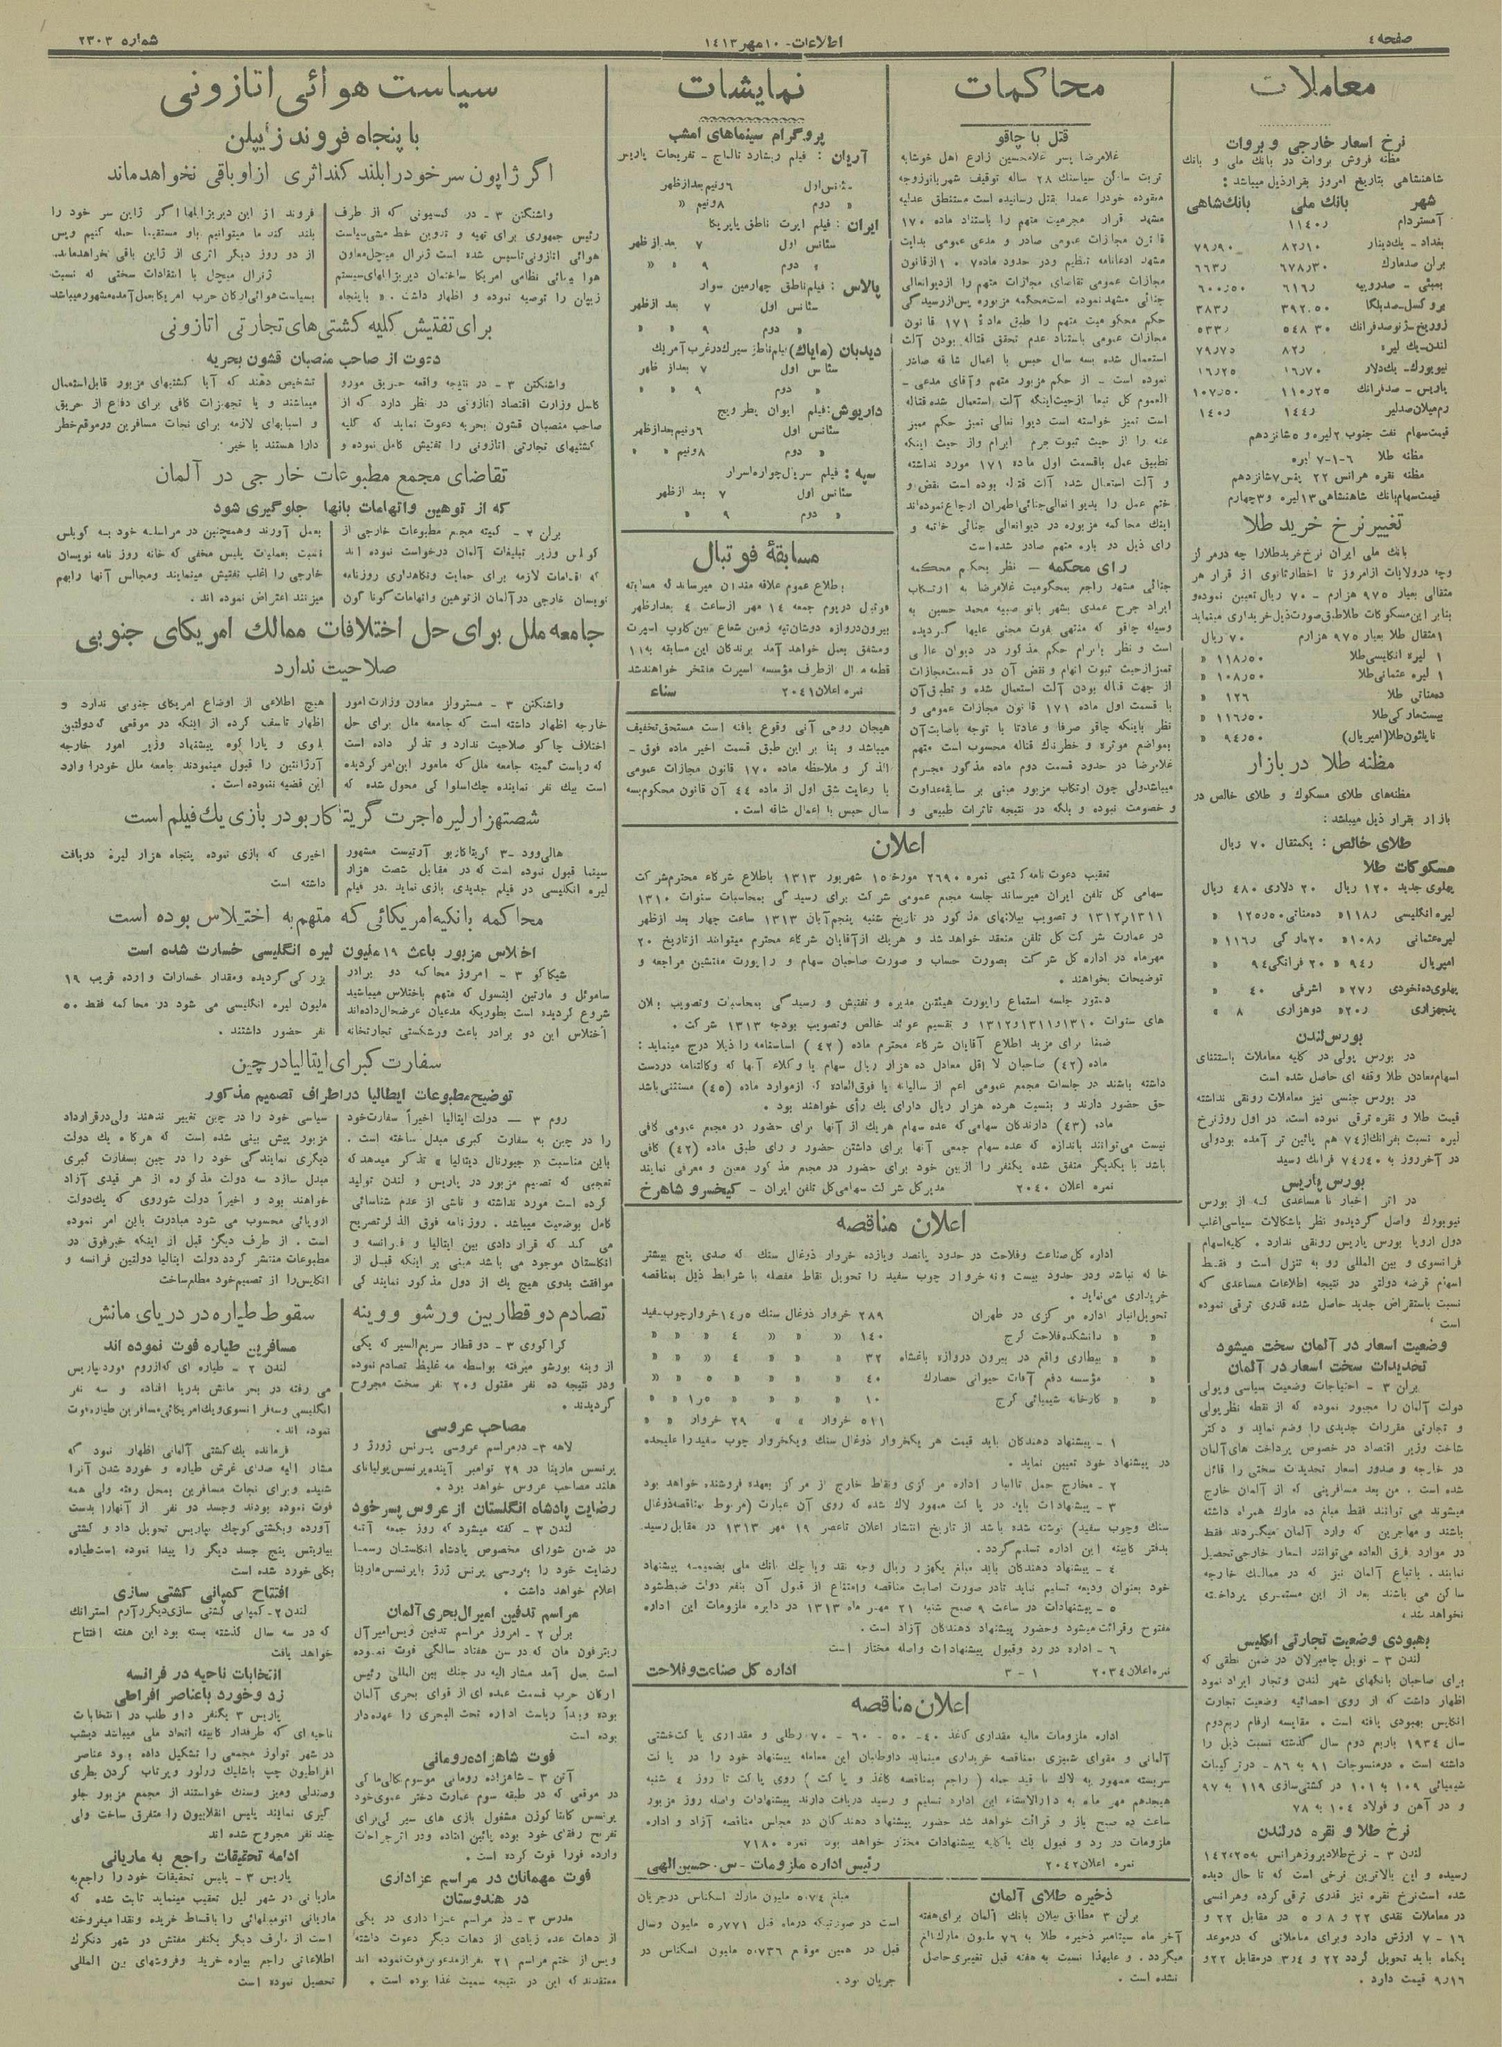 صفحه ٤
اطلاعات - ١٠ مهر ١٤١٣
شماره ٢٣٠٣
معاملات
نرخ اسعار خارجی و بروات
مظنه فروش بروات در بانك ملی و بانك
شاهنشاهی بتاریخ امروز بقرار ذیل میباشد :
شهر بانك ملی بانك شاهی
آمستردام ١١٤٠ر
بغداد - یكدینار ٨٢ر١٠ ٧٩ر٩٠
برلن صدمارك ٦٧٨ر٣٠ ٦٦٣ر
بمبئی - صدروپیه ٦١٦ر ٦٠٠ر٥٠
بروكسل-صدبلگا ٣٩٢.٥٠ ٣٨٣ر
زوریخ-ژنوصدفرانك ٥٤٨ ٣٠ ٥٣٣ر
لندن-یك لیره ٨٢ر ٧٩ر٧٥
نیویورك-یك دلار ١٦ر٧٠ ١٦ر٢٥
پاریس - صدفرانك ١١٠ر٢٥ ١٠٧ر٥٠
رم میلان صدلیر ١٤٤ر ١٤٠ر
قیمت سهام نفت جنوب ٢ لیره و ٥ شانزدهم
مظنه طلا ٦-١-٧ لیره
مظنه نقره هرانس ٢٢ پنس ٧ شانزدهم
قیمت سهام بانك شاهنشاهی ١٣ لیره و ٣ چهارم
تغییر نرخ خرید طلا
بانك ملی ایران نرخ خرید طلارا چه در مركز
وچه در ولایات از امروز تا اخطار ثانوی از قرار هر
مثقالی بعیار ٩٧٥ هزارم - ٧٠ ریال تعیین نموده و
بنابر این مسكوكات طلا طبق صورت ذیل خریداری مینماید
١ مثقال طلا بعیار ٩٧٥ هزارم ٧٠ ریال
١ لیره انگلیسی طلا ١١٨ر٥٠ »
١ لیره عثمانی طلا ١٠٨ر٥٠ »
ده مناتی طلا ١٢٦ »
بیست ماركی طلا ١١٦ر٥٠ »
ناپلئون طلا (امپریال) ٩٤ر٥٠ »
مظنه طلا در بازار
مظنه‌های طلای مسكوك و طلای خالص در
بازار بقرار ذیل میباشد :
طلای خالص : یكمثقال ٧٠ ریال
مسكوكات طلا
پهلوی جدید ١٢٠ ریال ٢٠ دلاری ٤٨٠ ریال
لیره انگلیسی ١١٨ر» ده مناتی ١٢٥ر٥٠ »
لیره عثمانی ١٠٨ر» ٢٠ماركی ١١٦ر »
امپریال ٩٤ر» ٢٠ فرانكی ٩٤ »
پهلوی ده نخودی ٢٧ر» اشرفی ٤٠ »
پنجهزاری ٢٠ر» دوهزاری ٨ »
بورس لندن
در بورس پولی در كلیه معاملات باستثنای
اسهام معادن طلا وقفه ای حاصل شده است
در بورس جنسی نیز معاملات رونقی نداشته
قیمت طلا و نقره ترقی نموده است. در اول روز نرخ
لیره نسبت بفرانك از ٧٤ هم پائین تر آمده بود ولی
در آخر روز به ٧٤ر٤٠ فرانك رسید
بورس پاریس
در اثر اخبار نامساعدی كه از بورس
نیویورك واصل گردیده و نظر باشكالات سیاسی اغلب
دول اروپا بورس پاریس رونقی ندارد . كلیه اسهام
فرانسوی و بین المللی رو به تنزل است و فقط
اسهام قرضه دولتی در نتیجه اطلاعات مساعدی كه
نسبت باستقراض جدید حاصل شده قدری ترقی نموده
است
وضعیت اسعار در آلمان سخت میشود
تحدیدات سخت اسعار در آلمان
برلن ٣ - احتیاجات وضعیت سیاسی و پولی
دولت آلمان را مجبور نموده كه از نقطه نظر پولی
و تجارتی مقررات جدیدی را وضع نماید و دكتر
شاخت وزیر اقتصاد در خصوص پرداخت های آلمان
در خارجه و صدور اسعار تحدیدات سختی را قائل
شده است . من بعد مسافرینی كه از آلمان خارج
میشوند می توانند فقط مبلغ ده مارك همراه داشته
باشند و مهاجرین كه وارد آلمان میگردند فقط
در موارد فوق العاده می‌توانند اسعار خارجی تحصیل
نمایند. باتباع آلمان نیز كه در ممالك خارجه
ساكن می باشند بعد از این مستمری پرداخته
نخواهد شد.
بهبودی وضعیت تجارتی انگلیس
لندن ٣ - نویل چامبرلان در ضمن نطقی كه
برای صاحبان بانكهای شهر لندن وتجار ایراد نمود
اظهار داشت كه از روی احصائیه وضعیت تجارت
انگلیس بهبودی یافته است . مقایسه ارقام ربع دوم
سال ١٩٣٤ باربع دوم سال گذشته نسبت ذیل را
داشته است . درمنسوجات ٩١ به ٨٦ - در تركیبات
شیمیائی ١٠٩ به ١٠١ در كشتی سازی ١١٩ به ٩٧
و در آهن و فولاد ١٠٤ به ٧٨
نرخ طلا و نقره در لندن
لندن ٣ - نرخ طلا دیروز هرانس به ١٤٢ر٢٥
رسیده و این بالاترین نرخی است كه تا حال دیده
شده است نرخ نقره نیز قدری ترقی كرده و هر انسی
در معاملات نقدی ٢٢ و ٨ر٥ در مقابل ٢٢ و
١٦ - ٧ ارزش دارد وبرای معاملاتی كه در موعد
یكماه باید تحویل گردد ٢٢ و ٣ر٤ در مقابل ٢٢ و
٩ر١٦ قیمت دارد .
محاكمات
قتل با چاقو
غلامرضا پسر غلامحسین زارع اهل خوشابه
تربت ساكن سیاسنك ٢٨ ساله توقیف شهربانو زوجه
منقوده خودرا عمدا بقتل رسانیده است مستنطق عدلیه
مشهد قرار مجرمیت متهم را باستناد ماده ١٧٠
قانون مجازات عمومی صادر و مدعی عمومی بدایت
مشهد ادعانامه تنظیم و در حدود ماده ١٠٧ از قانون
مجازات عمومی تقاضای مجازات متهم را از دیوانعالی
جنائی مشهد نموده است محكمه مزبوره پس از رسیدگی
حكم محكومیت متهم را طبق مادهٔ ١٧١ قانون
مجازات عمومی باستناد عدم تحقق قتاله بودن آلت
استعمال شده بسه سال حبس با اعمال شاقه صادر
نموده است - از حكم مزبور متهم و آقای مدعی -
العموم كل تمیز از حیث اینكه آلت استعمال شده قتاله
است تمیز خواسته است دیوانعالی تمیز حكم ممیز
عنه را از حیث ثبوت جرم ابرام و از حیث اینكه
تطبیق عمل باقسمت اول ماده ١٧١ مورد نداشته
و آلت استعمال شده آلت قتاله بوده است نقض و
ختم عمل را بدیوانعالی جنائی طهران ارجاع نموده‌اند
اینك محاكمه مزبوره در دیوانعالی جنائی خاتمه و
رای ذیل در باره متهم صادر شده است
رای محكمه - نظر بحكم محكمه
جنائی مشهد راجع بمحكومیت غلامرضا به ارتكاب
ایراد جرح عمدی بشهر بانو صبیه محمد حسین به
وسیله چاقو كه منتهی بفوت مجنی علیها گردیده
است و نظر بابرام حكم مذكور در دیوان عالی
تمیز از حیث ثبوت اتهام و نقض آن در قسمت مجازات
از جهت قتاله بودن آلت استعمال شده و تطبیق آن
با قسمت اول ماده ١٧١ قانون مجازات عمومی و
نظر باینكه چاقو صرفا و عادتا با توجه باصابت آن
بمواضع موثره و خطرناك قتاله محسوب است متهم
غلامرضا در حدود قسمت دوم ماده مذكور مجرم
میباشد ولی چون ارتكاب مزبور مبنی بر سابقه عداوت
و خصومت نبوده و بلكه در نتیجه تاثرات طبیعی و
نمایشات
پروگرام سینماهای امشب
آریان : فیلم ریشارد تالماج - تفریحات پاریس
سئانس اول ٦ ونیم بعدازظهر
» دوم ٨ ونیم »
ایران : فیلم ناطق پاپریكا
سئانس اول ٧ بعد از ظهر
» دوم ٩ » »
پالاس : فیلم ناطق چهارمین سوار
سئانس اول ٧ بعد از ظهر
» دوم ٩ » »
دیدبان (مایاك) فیلم ناطق سیرك در غرب آمریك
سئانس اول ٧ بعد از ظهر
» دوم ٩ » »
داریوش : فیلم ایوان پطرویچ
سئانس اول ٦ ونیم بعدازظهر
» دوم ٨ ونیم » »
سپه : فیلم سریال جواره اسرار
سئانس اول ٧ بعد از ظهر
» دوم ٩ » »
مسابقهٔ فوتبال
باطلاع عموم علاقه مندان میرساند كه مسابقه
فوتبال در یوم جمعه ١٤ مهر از ساعت ٤ بعدازظهر
بیرون دروازه دوشان تپه زمین شعاع بین كلوپ اسپرت
ومشفق بعمل خواهد آمد برندگان این مسابقه به ١١
قطعه مدال از طرف مؤسسه اسپرت مفتخر خواهند شد
نمره اعلان ٢٠٤١ سناء
هیجان روحی آنی وقوع یافته است مستحق تخفیف
میباشد و بنا بر این طبق قسمت اخیر ماده فوق -
الذكر و ملاحظه ماده ١٧٠ قانون مجازات عمومی
با رعایت شق اول از ماده ٤٤ آن قانون محكوم بسه
سال حبس با اعمال شاقه است .
اعلان
تعقیب دعوت نامه كتبی نمره ٢٦٩٠ مورخه ١٥ شهریور ١٣١٣ باطلاع شركاء محترم شركت
سهامی كل تلفن ایران میرساند جلسه مجمع عمومی شركت برای رسیدگی بمحاسبات سنوات ١٣١٠
١٣١١ر١٣١٢ و تصویب بیلانهای مذكور در تاریخ شنبه پنجم آبان ١٣١٣ ساعت چهار بعد از ظهر
در عمارت شركت كل تلفن منعقد خواهد شد و هریك از آقایان شركاء محترم میتوانند از تاریخ ٢٠
مهرماه در اداره كل شركت بصورت حساب و صورت صاحبان سهام و راپورت مفتشین مراجعه و
توضیحات بخواهند .
دستور جلسه استماع راپورت هیئتین مدیره و تفتیش و رسیدگی بمحاسبات وتصویب بیلان
های سنوات ١٣١٠ر١٣١١ر١٣١٢ و تقسیم عوائد خالص وتصویب بودجه ١٣١٣ شركت .
ضمنا برای مزید اطلاع آقایان شركاء محترم ماده (٤٢) اساسنامه را ذیلا درج مینماید :
ماده (٤٢) صاحبان لا اقل معادل ده هزار ریال سهام یا وكلاء آنها كه وكالتنامه دردست
داشته باشند در جلسات مجمع عمومی اعم از سالیانه یا فوق العاده كه از موارد ماده (٤٥) مستثنی باشد
حق حضور دارند و بنسبت هر ده هزار ریال دارای یك رأی خواهند بود .
ماده (٤٣) دارندگان سهامی كه عده سهام هریك از آنها برای حضور در مجمع عمومی كافی
نیست می‌توانند باندازه كه عده سهام جمعی آنها برای داشتن حضور و رای طبق ماده (٤٢) كافی
باشد با یكدیگر متفق شده یكنفر را از بین خود برای حضور در مجمع مذكور معین و معرفی نمایند
نمره اعلان ٢٠٤٠ مدیر كل شركت سهامی كل تلفن ایران - كیخسرو شاهرخ
اعلان مناقصه
اداره كل صناعت وفلاحت در حدود پانصد ویازده خروار ذوغال سنك كه صدی پنج بیشتر
خاكه نباشد ودر حدود بیست ونه خروار چوب سفید را تحویل نقاط مفصله با شرایط ذیل بمناقصه
خریداری می‌نماید.
تحویل انبار اداره مركزی در طهران ٢٨٩ خروار ذوغال سنك ٥ر١٤ خروار چوب سفید
» » دانشكده فلاحت كرج ١٤٠ » » » ٤ » »
» » بیطاری واقع در بیرون دروازه باغشاه ٣٢ » » » ٤ » »
» » مؤسسه دفع آفات حیوانی حصارك ٤٠ » » » ٥ » »
» » كارخانه شیمیائی كرج ١٠ » » » ٥ر١ » »
٥١١ خروار » » ٢٩ خروار » »
١ - پیشنهاد دهندگان باید قیمت هر یكخروار ذوغال سنك ویكخروار چوب سفید را علیحده
در پیشنهاد خود تعیین نماید .
٢ - مخارج حمل تاانبار اداره مركزی ونقاط خارج از مركز بعهده فروشنده خواهد بود
٣ - پیشنهادات باید در پاكت ممهور لاك شده كه روی آن عبارت (مربوط بمناقصه ذوغال
سنك وچوب سفید) نوشته شده باشد از تاریخ انتشار اعلان تاعصر ١٩ مهر ١٣١٣ در مقابل رسید
بدفتر كابینه این اداره تسلیم گردد .
٤ - پیشنهاد دهندگان باید مبلغ یكهزار ریال وجه نقد ویا چك بانك ملی بضمیمه پیشنهاد
خود بعنوان ودیعه تسلیم نماید تادر صورت اصابت مناقصه وامتناع از قبول آن بنفع دولت ضبط شود
٥ - پیشنهادات در ساعت ٩ صبح شنبه ٢١ مهر ماه ١٣١٣ در دایره ملزومات این اداره
مفتوح وقرائت میشود وحضور پیشنهاد دهندگان آزاد است .
٦ - اداره در رد وقبول پیشنهادات واصله مختار است
نمره اعلان ٢٠٣٤ ١ - ٣ اداره كل صناعت وفلاحت
اعلان مناقصه
اداره ملزومات مالیه مقداری كاغذ ٤٠ - ٥٠ - ٦٠ - ٧٠ رطلی و مقداری پاكت خشتی
آلمانی و مقوای شیری بمناقصه خریداری مینماید داوطلبان این معامله پیشنهاد خود را در پاكت
سربسته ممهور به لاك با قید جمله ( راجع بمناقصه كاغذ و پاكت ) روی پاكت تا روز ٤ شنبه
هیجدهم مهر ماه به دارالانشاء این اداره تسلیم و رسید دریافت دارند پیشنهادات واصله روز مزبور
ساعت ده صبح باز و قرائت خواهد شد حضور پیشنهاد دهندگان در مجلس مناقصه آزاد و اداره
ملزومات در رد و قبول یك یا كلیه پیشنهادات مختار خواهد بود نمره ٧١٨٠
نمره اعلان ٢٠٤٢ رئیس اداره ملزومات - س. حسین الهی
ذخیره طلای آلمان
برلن ٣ مطابق بیلان بانك آلمان برای هفته
آخر ماه سپتامبر ذخیره طلا به ٧٦ ملیون مارك بالغ
میگردد . و علیهذا نسبت به هفته قبل تغییری حاصل
نشده است .
مبلغ ٥٠٧٤ ملیون مارك اسكناس در جریان
است در صورتیكه در ماه قبل ٥ر٧٧١ ملیون وسال
قبل در همین موقع ٥٠٧٣٦ ملیون اسكناس در
جریان بود .
سیاست هوائی اتازونی
با پنجاه فروند زپلن
اگر ژاپون سر خود را بلند كند اثری از او باقی نخواهد ماند
واشنگتن ٣ - در كمیسیونی كه از طرف
رئیس جمهوری برای تهیه و تدوین خط مشی سیاست
هوائی اتازونی تاسیس شده است ژنرال میچل معاون
هوا پیمائی نظامی امریكا ساختمان دیریژابلهای سیستم
زپلن را توصیه نموده و اظهار داشت. « باپنجاه
فروند از این دیریژابلها اگر ژاپن سر خود را
بلند كند ما میتوانیم باو مستقیما حمله كنیم وپس
از دو روز دیگر اثری از ژاپن باقی نخواهد ماند.
ژنرال میچل با انتقادات سختی كه نسبت
بسیاست هوائی اركان حرب امریكا بعمل آمده مشهور میباشد
برای تفتیش كلیه كشتی های تجارتی اتازونی
دعوت از صاحب منصبان قشون بحریه
واشنگتن ٣ - در نتیجه واقعه حریق مورو
كاسل وزارت اقتصاد اتازونی در نظر دارد كه از
صاحب منصبان قشون بحریه دعوت نماید كه كلیه
كشتیهای تجارتی اتازونی را تفتیش كامل نموده و
تشخیص دهند كه آیا كشتیهای مزبور قابل استعمال
میباشند و یا تجهیزات كافی برای دفاع از حریق
و اسبابهای لازمه برای نجات مسافرین در موقع خطر
دارا هستند یا خیر
تقاضای مجمع مطبوعات خارجی در آلمان
كه از توهین واتهامات بانها جلوگیری شود
برلن ٢ - كمیته مجمع مطبوعات خارجی از
گوبلس وزیر تبلیغات آلمان درخواست نموده اند
كه اقدامات لازمه برای حمایت ونگاهداری روزنامه
نویسان خارجی در آلمان از توهین و اتهامات گوناگون
بعمل آورند وهمچنین در مراسله خود به گوبلس
نسبت بعملیات پلیس مخفی كه خانه روزنامه نویسان
خارجی را اغلب تفتیش مینمایند ومجالس آنها را بهم
میزنند اعتراض نموده اند .
جامعه ملل برای حل اختلافات ممالك امریكای جنوبی
صلاحیت ندارد
واشنگتن ٣ - مستر ولز معاون وزارت امور
خارجه اظهار داشته است كه جامعه ملل برای حل
اختلاف چاكو صلاحیت ندارد و تذكر داده است
كه ریاست كمیته جامعه ملل كه مامور این امر گردیده
است بیك نفر نماینده چك اسلواكی محول شده كه
هیچ اطلاعی از اوضاع امریكای جنوبی ندارد و
اظهار تاسف كرده از اینكه در موقعی كه دولتین
بلیوی و پاراگوه پیشنهاد وزیر امور خارجه
آرژانتین را قبول مینمودند جامعه ملل خود را وارد
این قضیه ننموده است .
شصت هزار لیره اجرت گریتا گاربو در بازی یك فیلم است
هالی وود - ٣ گریتا گاربو آرتیست مشهور
سینما قبول نموده است كه در مقابل شصت هزار
لیره انگلیسی در فیلم جدیدی بازی نماید. در فیلم
اخیری كه بازی نموده پنجاه هزار لیره دریافت
داشته است
محاكمه بانكیه امریكائی كه متهم به اختلاس بوده است
اختلاس مزبور باعث ١٩ ملیون لیره انگلیسی خسارت شده است
شیكاگو ٣ - امروز محاكمه دو برادر
ساموئل و مارتین اینسول كه متهم باختلاس میباشند
شروع گردیده است بطوریكه مدعیان عرضحال داده‌اند
اختلاس این دو برادر باعث ورشكستی تجارتخانه
بزرگی گردیده ومقدار خسارات وارده قریب ١٩
ملیون لیره انگلیسی می شود در محاكمه فقط ٥٠
نفر حضور داشتند .
سفارت كبرای ایتالیا در چین
توضیح مطبوعات ایطالیا در اطراف تصمیم مذكور
روم ٣ - دولت ایتالیا اخیراً سفارت خود
را در چین به سفارت كبری مبدل ساخته است .
باین مناسبت « جیورنال دیتالیا » تذكر میدهد كه
تعجبی كه تصمیم مزبور در پاریس و لندن تولید
كرده است مورد نداشته و ناشی از عدم شناسائی
كامل بوضعیت میباشد . روزنامه فوق الذكر تصریح
می كند كه قراردادی بین ایتالیا و فرانسه و
انگلستان موجود می باشد مبنی بر اینكه قبل از
موافقت بدوی هیچ یك از دول مذكور نمایندگی
سیاسی خود را در چین تغییر ندهند ولی در قرارداد
مزبور پیش بینی شده است كه هر گاه یك دولت
دیگری نمایندگی خود را در چین بسفارت كبری
مبدل سازد سه دولت مذكوره از هر قیدی آزاد
خواهند بود و اخیراً دولت شوروی كه یك دولت
اروپائی محسوب می شود مبادرت باین امر نموده
است . از طرف دیگر قبل از اینكه خبر فوق در
مطبوعات منتشر گردد دولت ایتالیا دولتین فرانسه و
انگلیس را از تصمیم خود مطلع ساخت
تصادم دو قطار بین ورشو و وینه
كراكووی ٣ - دو قطار سریع السیر كه یكی
از وینه بورشو میرفته بواسطه مه غلیظ تصادم نموده
ودر نتیجه ده نفر مقتول و ٢٠ نفر سخت مجروح
گردیدند .
مصاحب عروسی
لاهه ٣ - در مراسم عروسی پرنس ژورژ و
پرنسس مارینا در ٢٩ نوامبر آینده پرنسس یولیانای
هلند مصاحب عروس خواهد بود .
رضایت پادشاه انگلستان از عروس پسر خود
لندن ٣ - گفته میشود كه روز جمعه آتیه
در ضمن شورای مخصوص پادشاه انگلستان رسما
رضایت خود را بعروسی پرنس ژرژ باپرنسس مارینا
اعلام خواهد داشت .
مراسم تدفین امیرال بحری آلمان
برلن ٢ - امروز مراسم تدفین ویس امیرآل
ریترفون مان كه در سن هفتاد سالگی فوت نموده
است بعمل آمد مشارالیه در جنك بین المللی رئیس
اركان حرب قسمت عمده ای از قوای بحری آلمان
بوده وبعداً ریاست اداره تحت البحری را عهده دار
بوده است
فوت شاهزاده رومانی
آتن ٣ - شاهزاده رومانی موسوم بكالیماكی
در موقعی كه در طبقه سوم عمارت دختر عموی خود
پرنسس كانتاكوزن مشغول بازی های سیر كی برای
تفریح رفقای خود بوده پائین افتاده ودر اثر جراحات
وارده فورا فوت كرده است .
فوت مهمانان در مراسم عزاداری
در هندوستان
مدرس ٣ - در مراسم عزاداری در یكی
از دهات عده زیادی از دهات دیگر دعوت داشته
وپس از ختم مراسم ٢١ نفر از مدعوین فوت نموده اند
معتقدند كه این در نتیجه سمیت غذا بوده است .
سقوط طیاره در دریای مانش
مسافرین طیاره فوت نموده اند
لندن ٢ - طیاره ای كه از روم فورد بپاریس
می رفته در بحر مانش بدریا افتاده و سه نفر
انگلیسی وسه فرانسوی ویك امریكائی مسافر بن طیاره فوت
نموده اند .
فرمانده یك كشتی آلمانی اظهار نمود كه
مشارالیه صدای غرش طیاره و خورد شدن آنرا
شنیده وبرای نجات مسافرین بمحل رفته ولی همه
فوت نموده بودند وجسد دو نفر از آنها را بدست
آورده وبكشتی كوچك بپاریس تحویل داد و كشتی
بیاریتس پنج جسد دیگر را پیدا نموده است طیاره
بكلی خورد شده است
افتتاح كمپانی كشتی سازی
لندن ٢ - كمپانی كشتی سازی دیگر در آرم استرانك
كه در سه سال گذشته بسته بود این هفته افتتاح
خواهد یافت
انتخابات ناحیه در فرانسه
زد و خورد با عناصر افراطی
پاریس ٣ یكنفر داوطلب در انتخابات
ناحیه ای كه طرفدار كابینه اتحاد ملی میباشد دیشب
در شهر تولوز مجمعی را تشكیل داده بود عناصر
افراطیون چپ باشلیك رولور وپرتاب كردن بطری
وصندلی ومیز وسنك خواستند از مجمع مزبور جلو
گیری نمایند پلیس انقلابیون را متفرق ساخت ولی
چند نفر مجروح شده اند
ادامه تحقیقات راجع به ماریانی
پاریس ٣ - پلیس تحقیقات خود را راجع به
ماریانی در شهر لیل تعقیب مینماید ثابت شده كه
ماریانی اتومبیلهائی را باقساط خریده ونقدا میفروخته
است از طرف دیگر یكنفر مفتش در شهر دنكرك
اطلاعاتی راجع بپاره خرید وفروشهای بین المللی
تحصیل نموده است